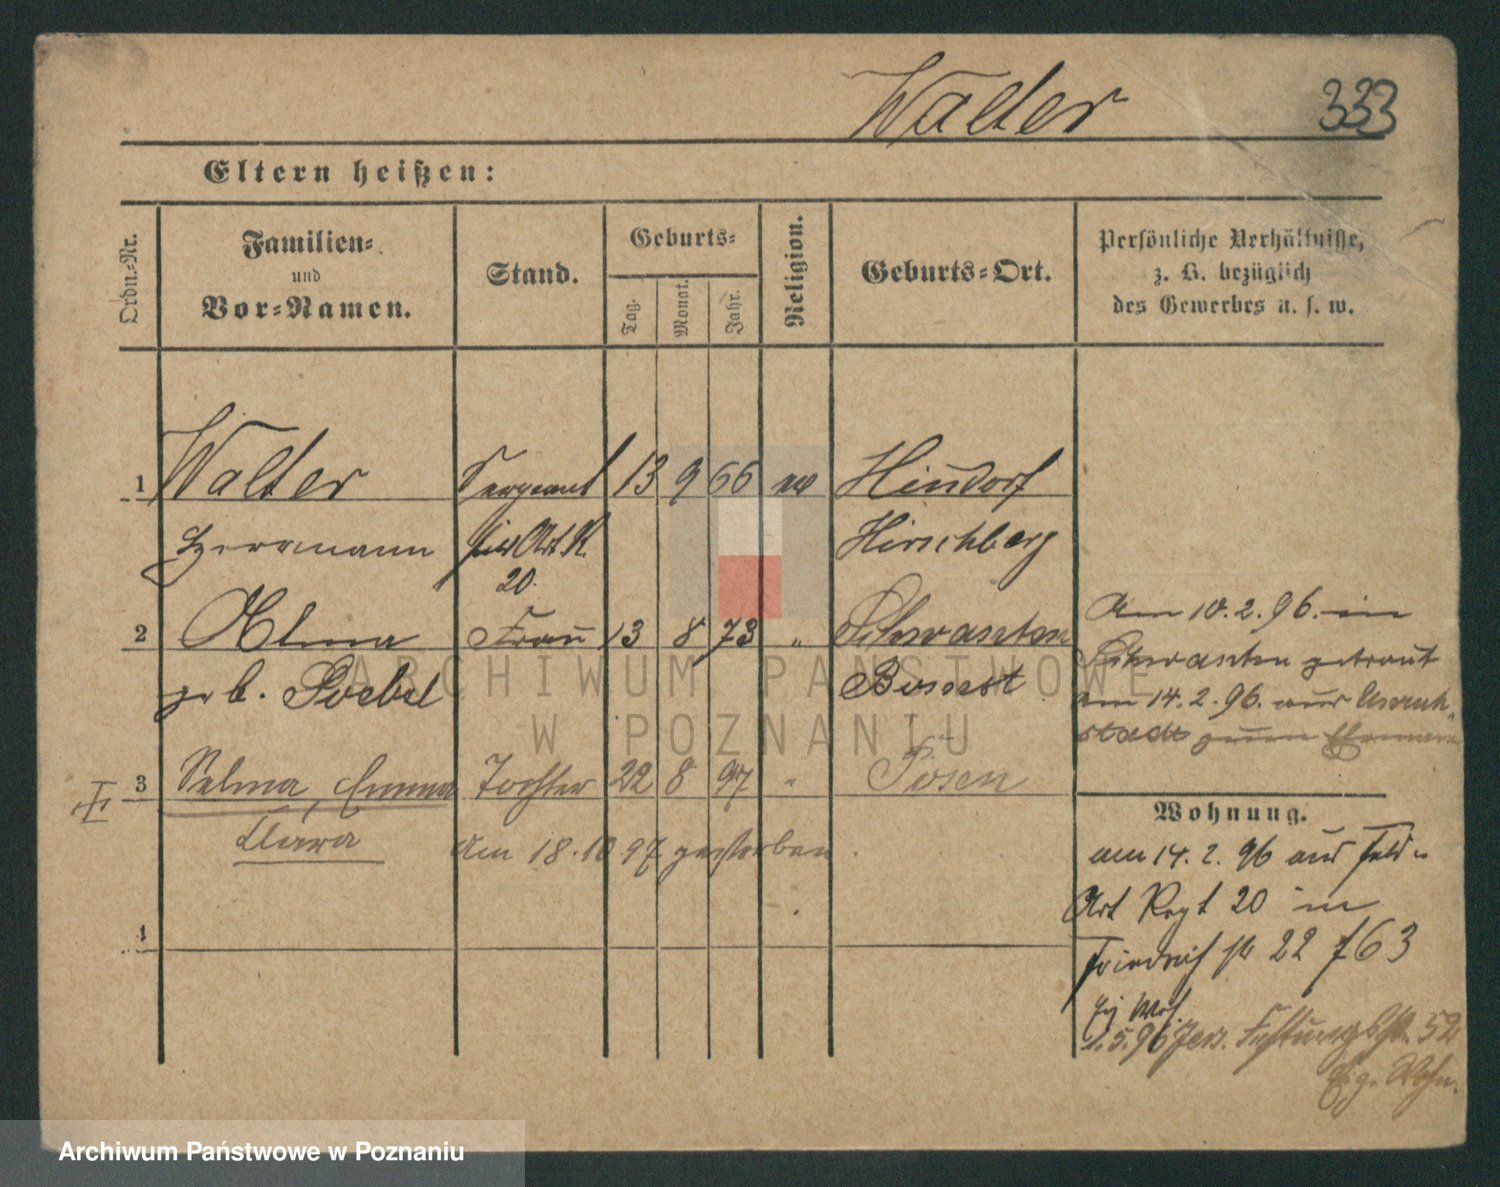 Walter 333
Eltern heißen:
Ordn.-Nr.
Familien-
und
Vor-Namen.
Stand.
Geburts-
Tag.
Monat.
Jahr.
Religion.
Geburts-Ort.
Persönliche Verhältnisse,
z. B. bezüglich
des Gewerbes u. s. w.
1 Walter Sergeant 13 9 66 ev Hindorf
Herrmann Art. R. Hirschberg
20.
2 Alma Frau 13 8 73 " Schwanten
geb. Poebel Bomst
Am 10.2.96. in
Schwanten getraut
am 14.2.96. aus Unruh-
stadt zum Ehemann
3 Selma, Emma Tochter 22 8 97 " Posen
Clara am 18.10 97 gestorben.
4
Wohnung.
am 14.2.96 aus Feld-
Art Regt 20 in
Friedrich str 22 f 63
Eig Woh.
1.5.96 Jers. Festungsstr. 52
Eig. Wohn.
ARCHIWUM PAŃSTWOWE
W POZNANIU
Archiwum Państwowe w Poznaniu